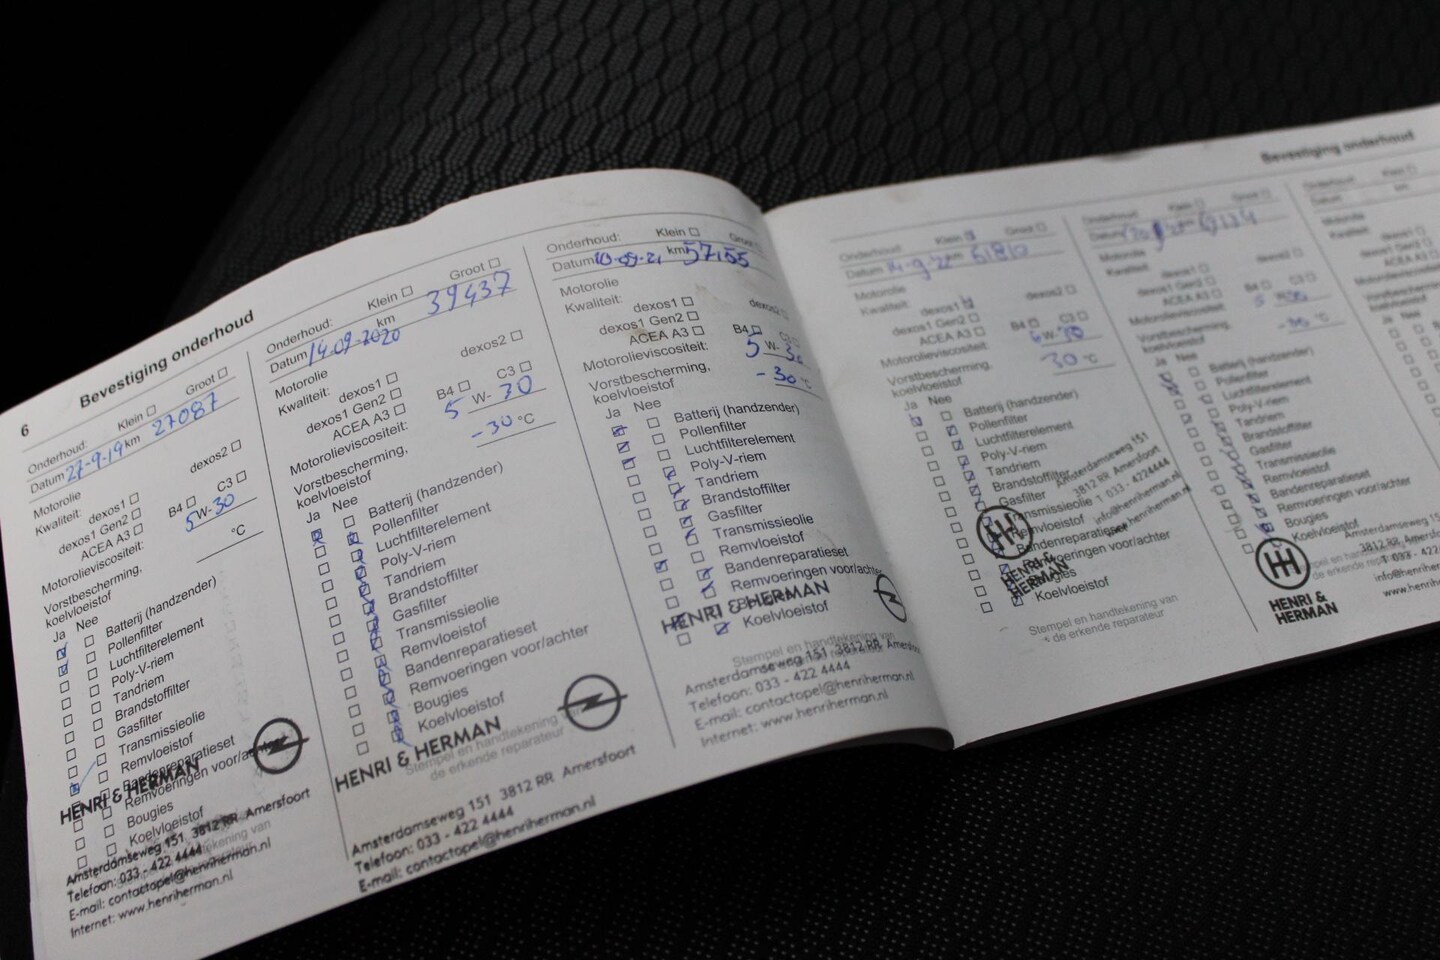 6
Bevestiging onderhoud
Onderhoud: Klein Groot
Datum 27-9-19 km 27087
Motorolie
Kwaliteit: dexos1 dexos2
dexos1 Gen2
ACEA A3 B4 C3
Motorolieviscositeit: 5 W- 30
Vorstbescherming,
koelvloeistof °C
Ja Nee
Batterij (handzender)
Pollenfilter
Luchtfilterelement
Poly-V-riem
Tandriem
Brandstoffilter
Gasfilter
Transmissieolie
Remvloeistof
Bandenreparatieset
Remvoeringen
Bougies
Koelvloeistof
HENRI & HERMAN
Amsterdamseweg 151 3812 RR Amersfoort
Telefoon: 033 - 422 4444
E-mail: contactopel@henriherman.nl
Internet: www.henriherman.nl
Onderhoud: Klein Groot
Datum 14-09-2020 km 39437
Motorolie
Kwaliteit: dexos1 dexos2
dexos1 Gen2
ACEA A3 B4 C3
Motorolieviscositeit: 5 W- 30
Vorstbescherming,
koelvloeistof -30 °C
Ja Nee
Batterij (handzender)
Pollenfilter
Luchtfilterelement
Poly-V-riem
Tandriem
Brandstoffilter
Gasfilter
Transmissieolie
Remvloeistof
Bandenreparatieset
Remvoeringen voor/achter
Bougies
Koelvloeistof
HENRI & HERMAN
Stempel en handtekening
de erkende reparateur
Amsterdamseweg 151 3812 RR Amersfoort
Telefoon: 033 - 422 4444
E-mail: contactopel@henriherman.nl
Onderhoud: Klein Groot
Datum km
Motorolie
Kwaliteit: dexos1 dexos2
dexos1 Gen2
ACEA A3 B4 C3
Motorolieviscositeit: 5 W- 30
Vorstbescherming,
koelvloeistof -30 °C
Ja Nee
Batterij (handzender)
Pollenfilter
Luchtfilterelement
Poly-V-riem
Tandriem
Brandstoffilter
Gasfilter
Transmissieolie
Remvloeistof
Bandenreparatieset
Remvoeringen voor/achter
Koelvloeistof
HENRI & HERMAN
Stempel en handtekening van
Amsterdamseweg 151 3812 RR
Telefoon: 033 - 422 4444
E-mail: contactopel@henriherman.nl
Internet: www.henriherman.nl
Bevestiging onderhoud
Onderhoud: Klein Groot
Datum
Motorolie
Kwaliteit: dexos1 dexos2
dexos1 Gen2
ACEA A3 B4 C3
Motorolieviscositeit: W-
Vorstbescherming,
koelvloeistof 30 °C
Ja Nee
Batterij (handzender)
Pollenfilter
Luchtfilterelement
Poly-V-riem
Tandriem
Brandstoffilter
Gasfilter
Transmissieolie
Remvloeistof
Bandenreparatieset
Bougies
Koelvloeistof
HENRI &
HERMAN
Amsterdamseweg 151
3812 RR Amersfoort
T 033 - 4224444
info@henriherman.nl
www.henriherman.nl
Stempel en handtekening van
de erkende reparateur
Onderhoud: Klein Groot
Datum
Motorolie
Kwaliteit: dexos1 dexos2
dexos1 Gen2
ACEA A3 B4 C3
Motorolieviscositeit:
Vorstbescherming,
koelvloeistof -30 °C
Ja Nee
Batterij (handzender)
Pollenfilter
Luchtfilterelement
Poly-V-riem
Tandriem
Brandstoffilter
Gasfilter
Transmissieolie
Remvloeistof
Bandenreparatieset
Remvoeringen voor/achter
Bougies
Koelvloeistof
HENRI &
HERMAN
Onderhoud: Klein
Datum km
Motorolie
Kwaliteit: